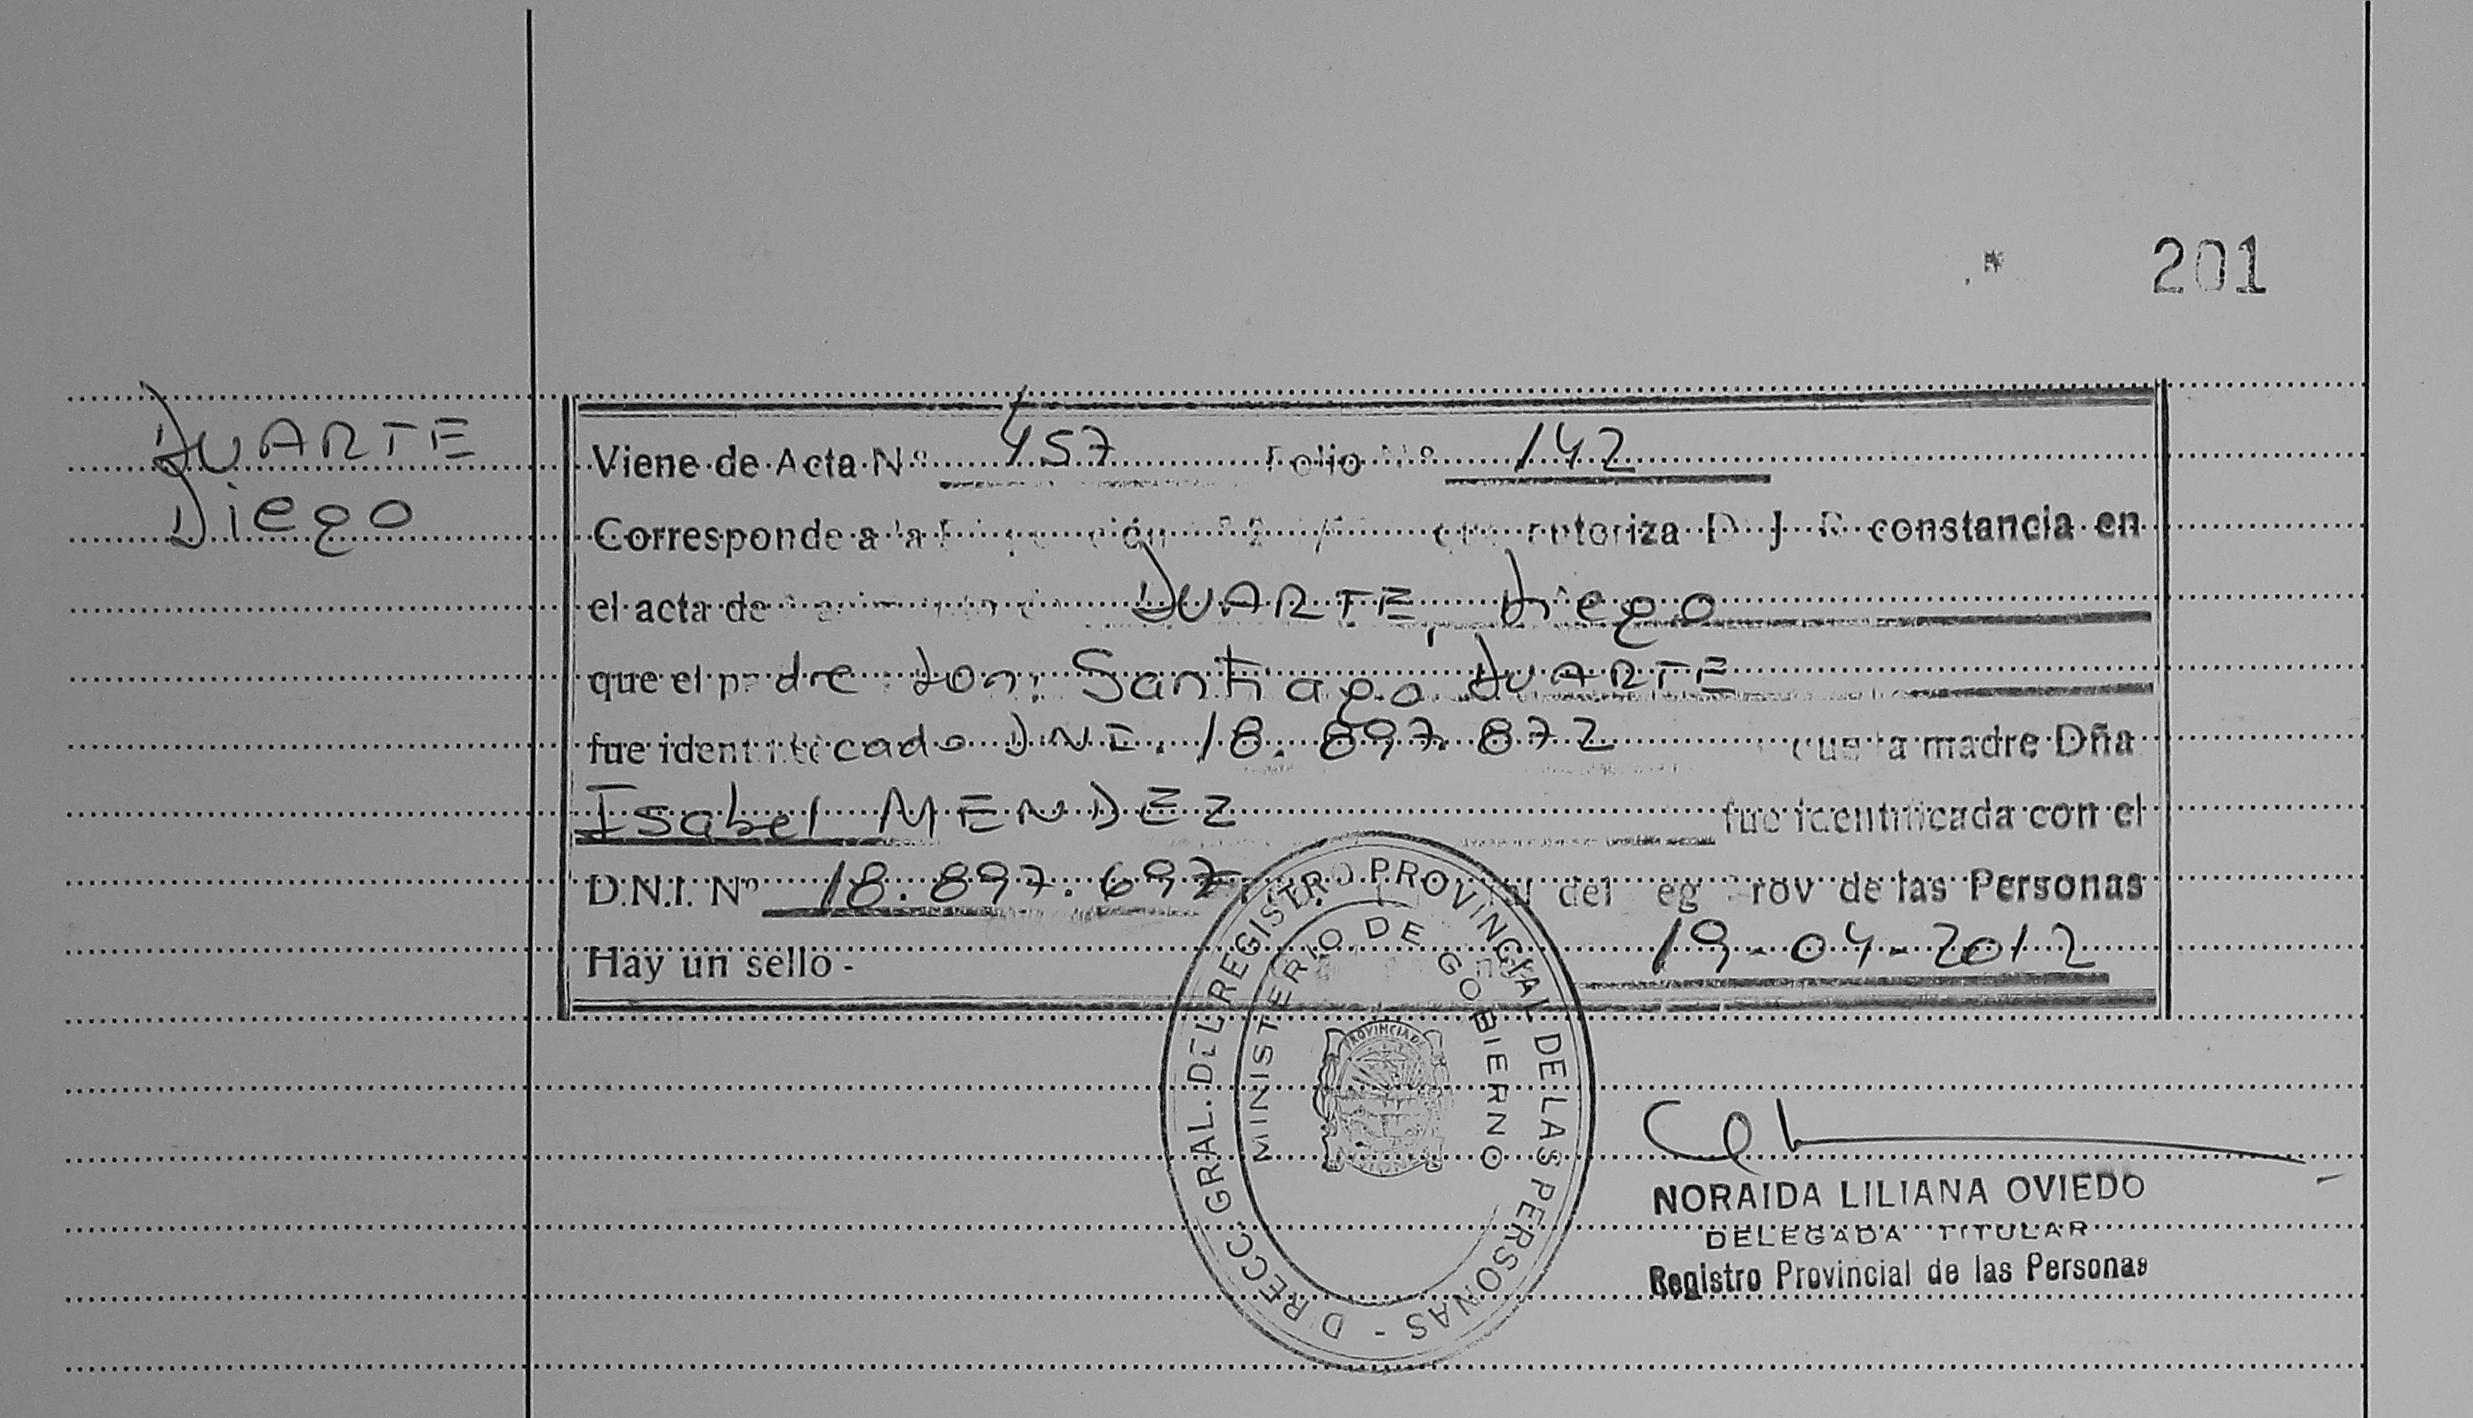 201
DUARTE
Diego
Viene de Acta Nº 457 Folio Nº 142
Corresponde a la autoriza constancia en
el acta de DUARTE, Diego
que el padre don: Santiago DUARTE
fue identificado D.N.I. 18.897.872 madre Dña
Isabel MENDEZ fue identificada con el
D.N.I. Nº 18.897.697 del Reg Prov de las Personas
Hay un sello - 19-04-2012
DIRECC. GRAL. DEL REGISTRO PROVINCIAL DE LAS PERSONAS -
MINISTERIO DE GOBIERNO
PROVINCIA DE
MISIONES
NORAIDA LILIANA OVIEDO
DELEGADA TITULAR
Registro Provincial de las Personas